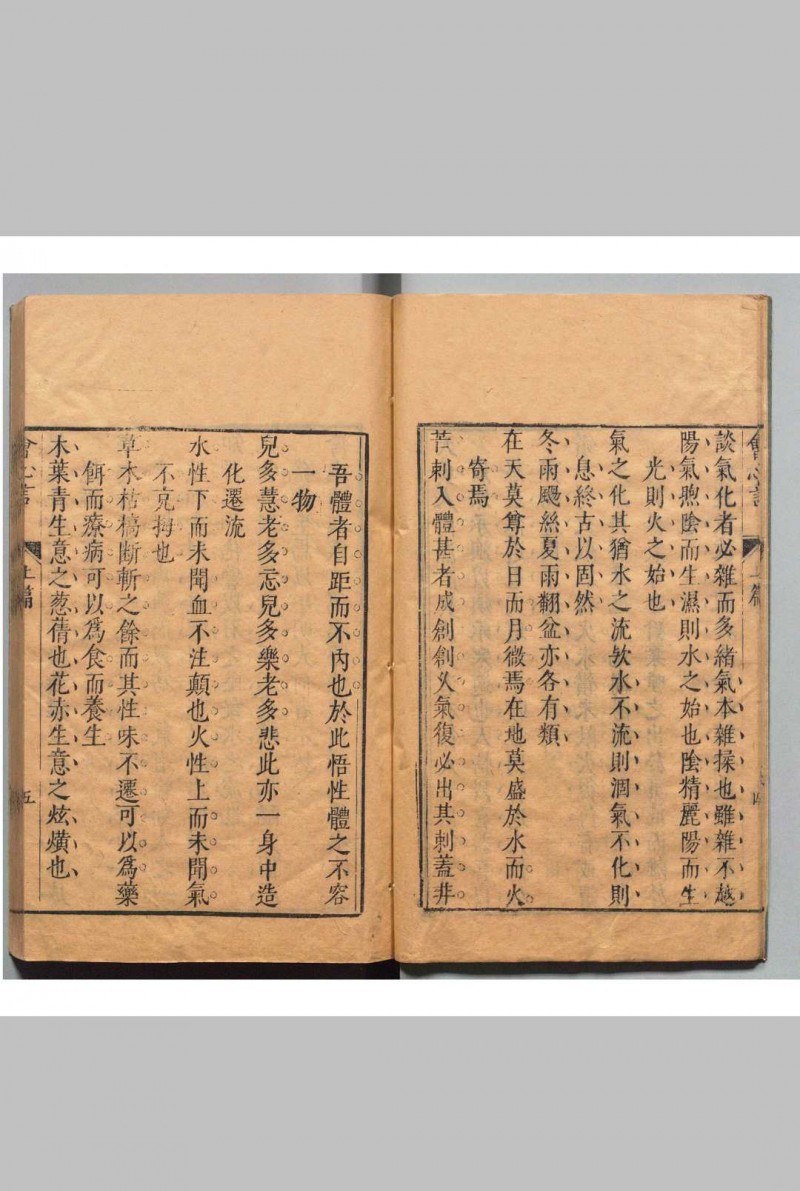 會心言 上篇 四
談氣化者必雜而多緒氣本雜揉也雖雜不越
陽氣煦陰而生濕則水之始也陰精麗陽而生
光則火之始也
氣之化其猶水之流歟水不流則涸氣不化則
息終古以固然
冬雨颺絲夏雨翻盆亦各有類
在天莫尊於日而月微焉在地莫盛於水而火
寄焉
芒刺入體甚者成創創乂氣復必出其刺蓋非
吾體者自距而不內也於此悟性體之不容
一物
兒多慧老多忘兒多樂老多悲此亦一身中造
化遷流
水性下而未聞血不注顛也火性上而未聞氣
不克拇也
草木枯槁斷斬之餘而其性味不遷可以為藥
餌而療病可以為食而養生
木葉青生意之葱蒨也花赤生意之炫熿也
會心言 上篇 五